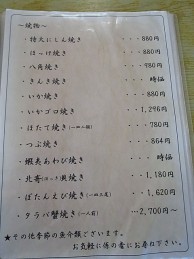 ～焼物～
・特大にしん焼き ・・・880円
・ほっけ焼き ・・・880円
・八角焼き ・・・980円
・きんき焼き ・・・時価
・いか焼き ・・・880円
・いかゴロ焼き ・・・1,296円
・ほたて焼き ・・・780円
・つぶ焼き ・・・864円
・蝦夷あわび焼き ・・・時価
・北寄 焼き ・・・1,180円
・ぼたんえび焼き ・・・1,620円
・タラバ蟹焼き(一人前) ・・・2,700円～
★その他季節の魚介類ございます。
お気軽に係の者にお尋ね下さい。